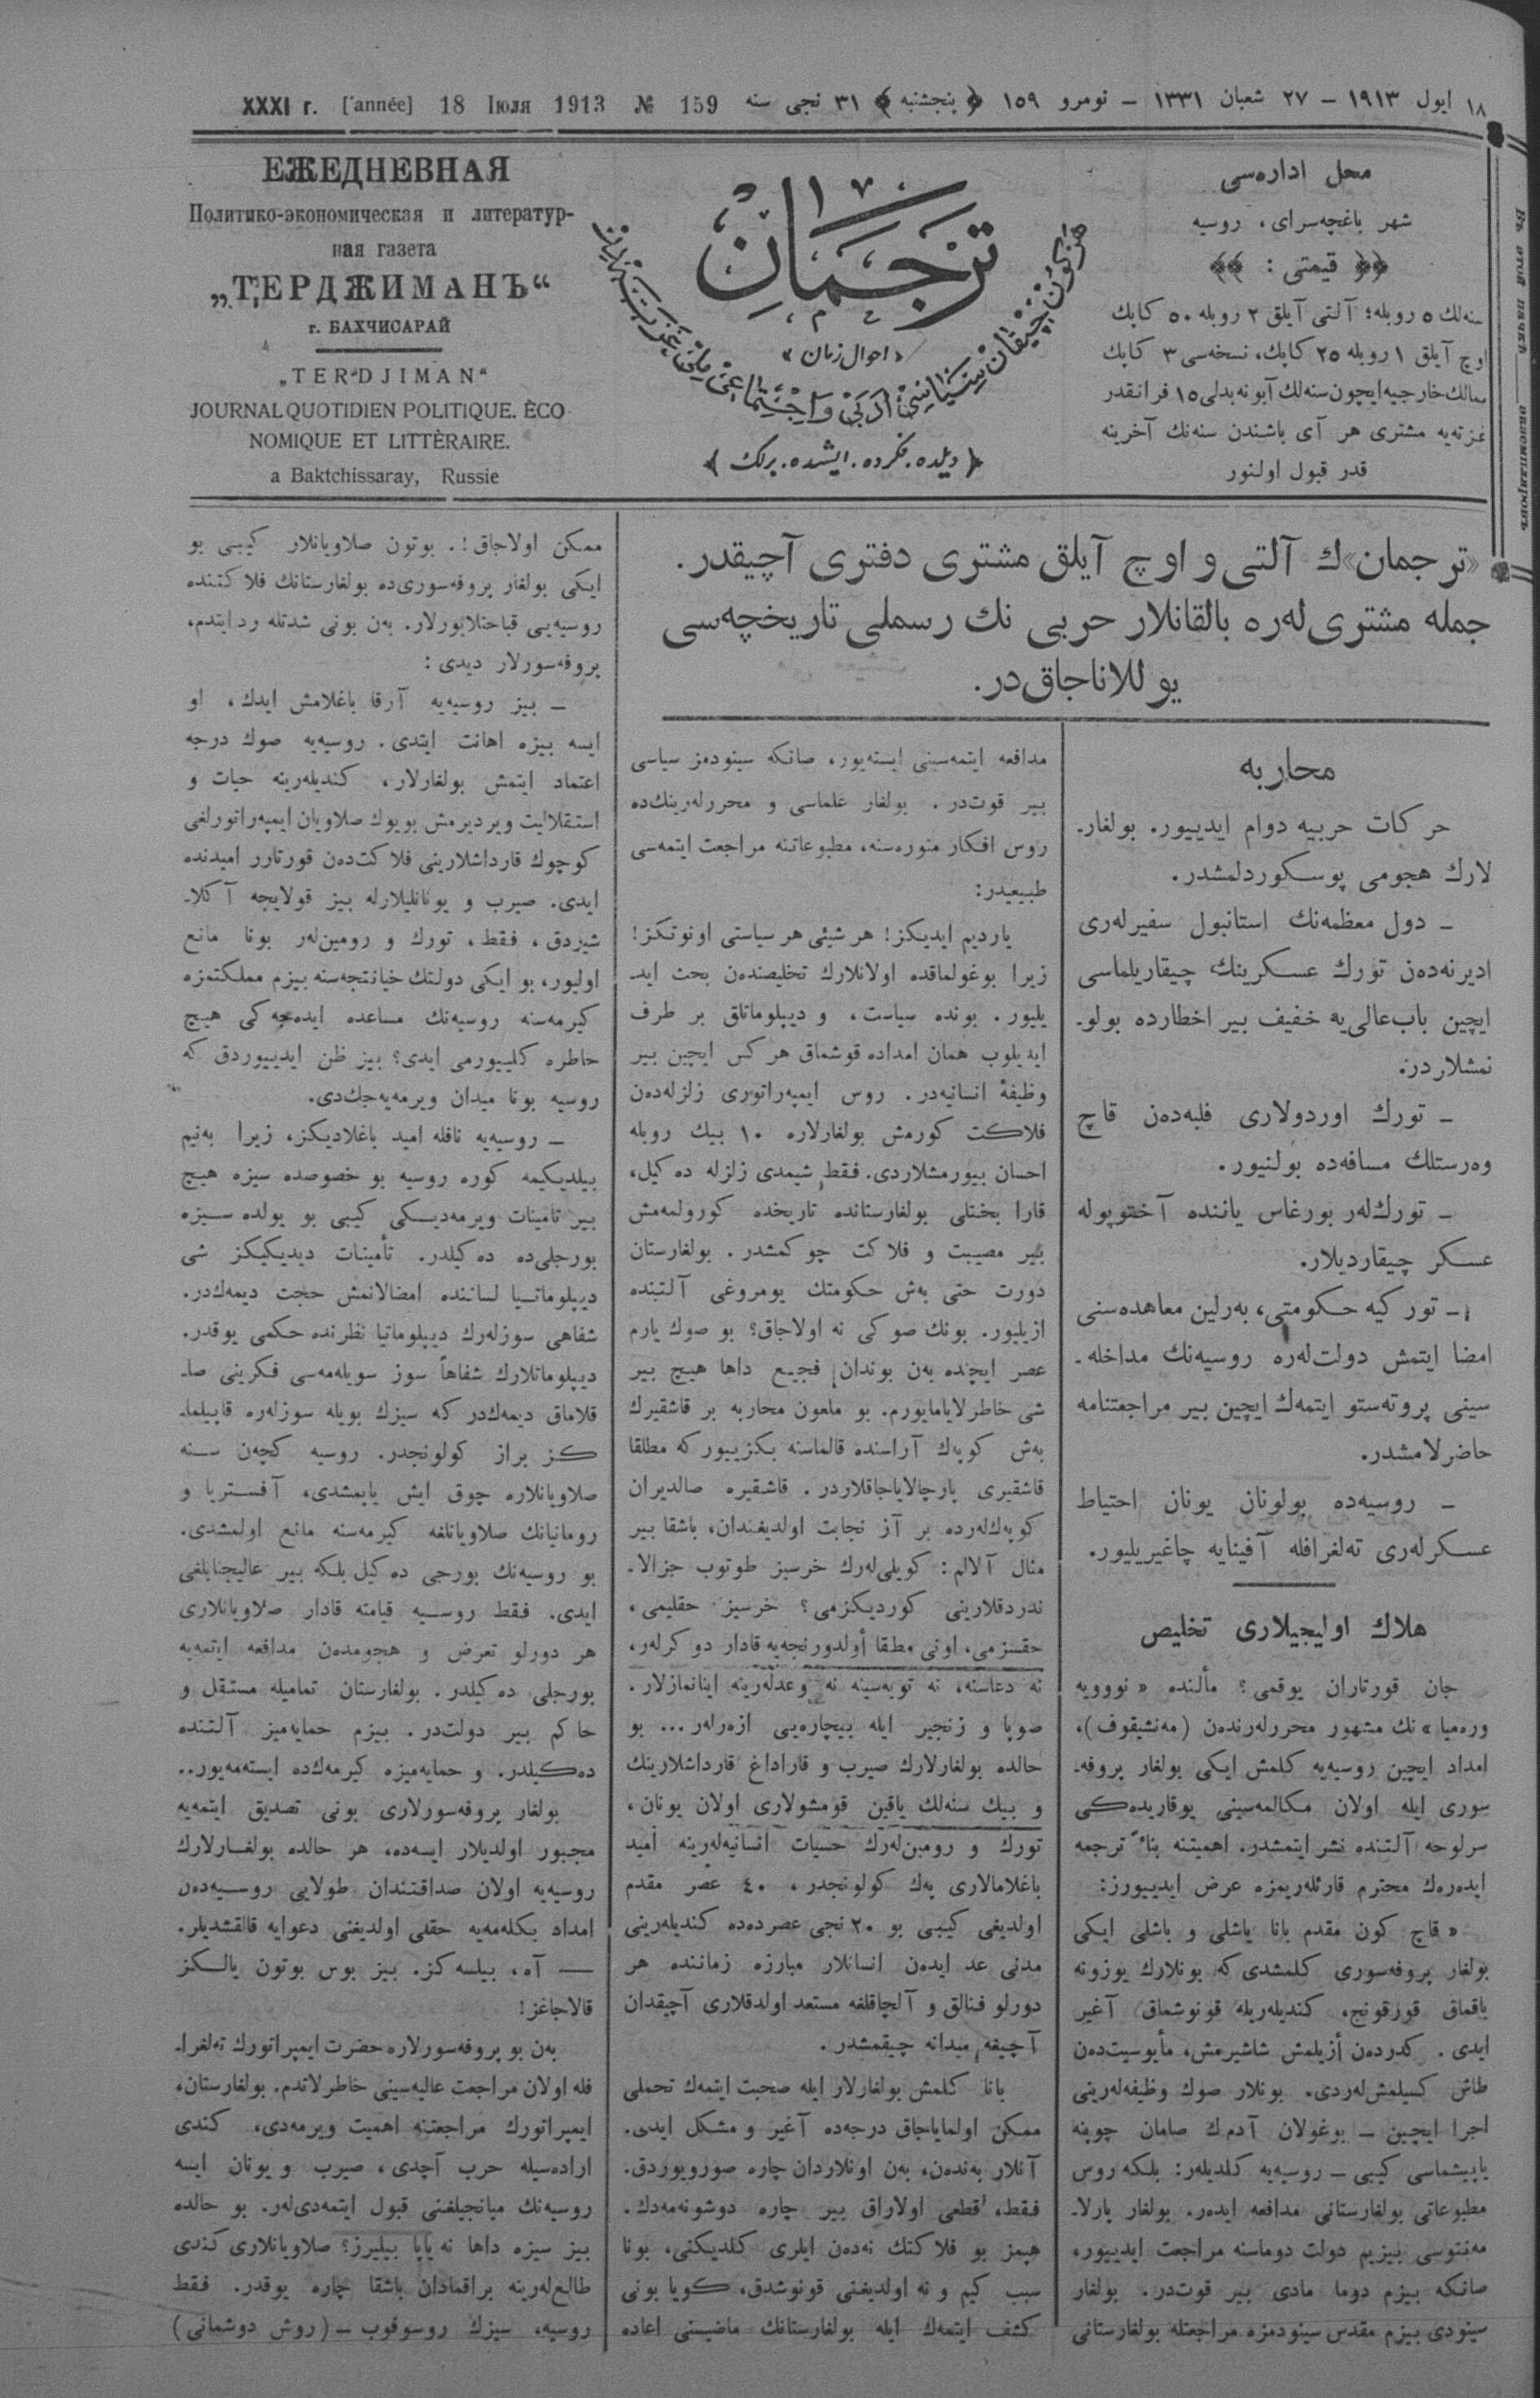 ١٨ ایول ١٩١٣ – ٢٧ شعبان ١٣٣١ – نومرو ١٥٩ ﴿ پنجشنبه ﴾ ٣١ نجی سنه
XXXI г. [année] 18 Іюля 1913 № 159
محل اداره‌سی
شهر باغچه‌سرای، روسیه
قیمتی :
سنه‌لك ٥ روبله؛ آلتی آیلق ٢ روبله ٥٠ كاپك
اوچ آیلق ١ روبله ٢٥ كاپك، نسخه‌سی ٣ كاپك
ممالك خارجیه ایچون سنه‌لك آبونه بدلی ١٥ فرانقدر
غزته‌یه مشتری هر آی باشندن سنه‌نك آخرینه
قدر قبول اولنور
ترجمان
«احوال زمان»
هر كون چیقان سیاسی، ادبی و اجتماعی ملی غزته
﴿ دیلده. فكرده. ایشده. برلك ﴾
ЕЖЕДНЕВНАЯ
Политико-экономическая и литератур-
ная газета
„ТЕРДЖИМАНЪ“
г. БАХЧИСАРАЙ
„TERDJIMAN“
JOURNAL QUOTIDIEN POLITIQUE. ÈCO
NOMIQUE ET LITTÈRAIRE.
a Baktchissaray, Russie
«ترجمان»ك آلتی و اوچ آیلق مشتری دفتری آچیقدر.
جمله مشتری‌لەره بالقانلار حربی نك رسملی تاریخچه‌سی
یوللاناجاق‌در.
محاربه
حركات حربیه دوام ایدییور. بولغار-
لارك هجومی پوسكوردلمشدر.
– دول معظمه‌نك استانبول سفیرلەری
ادیرنه‌دەن تورك عسكرینك چیقاریلماسی
ایچین باب‌عالی‌یه خفیف بیر اخطارده بولو-
نمشلاردر.
– تورك اوردولاری فلبه‌دەن قاچ
وەرستلك مسافه‌ده بولنیور.
– تورك‌لەر بورغاس یاننده آختوپوله
عسكر چیقاردیلار.
– توركیه حكومتی، بەرلین معاهده‌سنی
امضا ایتمش دولت‌لەره روسیه‌نك مداخله-
سینی پروتەستو ایتمەك ایچین بیر مراجعتنامه
حاضرلامشدر.
– روسیه‌ده بولونان یونان احتیاط
عسكرلەری تەلغرافله آفینایه چاغیریلیور.
هلاك اولیجیلاری تخلیص
جان قورتاران یوقمی؟ مألنده «نوویه
ورەمیا» نك مشهور محررلەرندەن (مەنشیقوف)،
امداد ایچین روسیه‌یه كلمش ایكی بولغار پروفه-
سوری ایله اولان مكالمه‌سینی یوقاریده‌كی
سرلوحه آلتنده نشر ایتمشدر. اهمیتنه بناءً ترجمه
ایدەرەك محترم قارئلەریمزه عرض ایدییورز:
«قاچ كون مقدم بانا یاشلی و باشلی ایكی
بولغار پروفه‌سوری كلمشدی كه بونلارك یوزونه
باقماق قورقونچ، كندیلەریله قونوشماق آغیر
ایدی. كدردەن أزیلمش شاشیرمش، مأیوسیت‌دەن
طاش كسیلمش‌لەردی. بونلار صوك وظیفه‌لەرینی
اجرا ایچین – بوغولان آدمك صامان چوپنه
یاپیشماسی كیبی – روسیه‌یه كلدیلەر: بلكه روس
مطبوعاتی بولغارستانی مدافعه ایدەر. بولغار پارلا-
مەنتوسی بیزیم دولت دوماسنه مراجعت ایدییور،
صانكه بیزم دوما مادی بیر قوت‌در. بولغار
سینودی بیزم مقدس سینودمزه مراجعتله بولغارستانی
مدافعه ایتمه‌سینی ایسته‌یور، صانكه سینودمز سیاسی
بیر قوت‌در. بولغار علماسی و محررلەرینك‌ده
روس افكار منوره‌سنه، مطبوعاتنه مراجعت ایتمه‌سی
طبیعیدر:
یاردیم ایدیكز! هر شیئی هر سیاستی اونوتكز!
زیرا بوغولماقده اولانلارك تخلیصندەن بحث اید-
یلیور. بونده سیاست، و دیپلوماتلق بر طرف
ایدیلوب همان امداده قوشماق هركس ایچین بیر
وظیفهٔ انسانیه‌در. روس ایمپەراتوری زلزله‌دەن
فلاكت كورمش بولغارلاره ١٠ بیك روبله
احسان بیورمشلاردی. فقط شیمدی زلزله ده‌كیل،
قارا بختلی بولغارستانده تاریخده كورولمەمش
بیر مصیبت و فلاكت چوكمشدر. بولغارستان
دورت حتی بەش حكومتك یومروغی آلتنده
ازیلیور. بونك صوكی نه اولاجاق؟ بو صوك یارم
عصر ایچنده بەن بوندان فجیع داها هیچ بیر
شی خاطرلایامایورم. بو ملعون محاربه بر قاشقیرك
بەش كوپەك آراسنده قالماسنه بكزییور كه مطلقا
قاشقیری پارچالایاجاقلاردر. قاشقیره صالدیران
كوپەك‌لەرده بر آز نجابت اولدیغندان، باشقا بیر
مثال آلالم: كویلی‌لەرك خرسیز طوتوب جزالا-
ندردقلارینی كوردیكزمی؟ خرسیز حقلیمی،
حقسزمی، اونی مطقا أولدورنجه‌یه قادار دوكرلەر،
نه دعاسنه، نه توبه‌سینه نه وعدلەرینه اینانمازلار.
صوپا و زنجیر ایله بیچاره‌یی ازەرلەر... بو
حالده بولغارلارك صیرب و قاراداغ قارداشلارینك
و بیك سنه‌لك یاقین قومشولاری اولان یونان،
تورك و رومین‌لەرك حسیات انسانیه‌لەرینه امید
باغلامالاری پەك كولونجدر، ٤٠ عصر مقدم
اولدیغی كیبی بو ٢٠ نجی عصرده‌ده كندیلەرینی
مدنی عد ایدەن انسانلار مبارزه زماننده هر
دورلو فنالق و آلچاقلغه مستعد اولدقلاری آچیقدان
آچیغه میدانه چیقمشدر.
بانا كلمش بولغارلار ایله صحبت ایتمەك تحملی
ممكن اولمایاجاق درجه‌ده آغیر و مشكل ایدی.
آنلار بەندەن، بەن اونلاردان چاره صورویوردق.
فقط، قطعی اولاراق بیر چاره دوشونه‌مەدك.
هپمز بو فلاكتك نەدەن ایلری كلدیكنی، بونا
سبب كیم و نه اولدیغنی قونوشدق، كویا بونی
كشف ایتمەك ایله بولغارستانك ماضیسنی اعاده
ممكن اولاجاق!. بوتون صلاویانلار كیبی بو
ایكی بولغار پروفه‌سوری‌ده بولغارستانك فلاكتنده
روسیه‌یی قباحتلابورلار. بەن بونی شدتله رد ایتدم،
پروفه‌سورلار دیدی:
– بیز روسیه‌یه آرقا باغلامش ایدك، او
ایسه بیزه اهانت ایتدی. روسیه‌یه صوك درجه
اعتماد ایتمش بولغارلار، كندیلەرینه حیات و
استقلالیت ویردیرمش بویوك صلاویان ایمپەراتورلغی
كوچوك قارداشلارینی فلاكت‌دەن قورتارر امیدنده
ایدی. صیرب و یونانلیلارله بیز قولایجه آكلا-
شیردق، فقط، تورك و رومین‌لەر بونا مانع
اولیور، بو ایكی دولتك خیانتجه‌سنه بیزم مملكتمزه
كیرمه‌سنه روسیه‌نك مساعده ایده‌جەكی هیچ
خاطره كلییورمی ایدی؟ بیز ظن ایدییوردق كه
روسیه بونا میدان ویرمەیەجك‌دی.
– روسیه‌یه نافله امید باغلادیكز، زیرا بەنیم
بیلدیكیمه كوره روسیه بو خصوصده سیزه هیچ
بیر تأمینات ویرمه‌دیكی كیبی بو یولده سیزه
بورجلی‌ده ده‌كیلدر. تأمینات دیدیكیكز شی
دیپلوماتیا لساننده امضالانمش حجت دیمەك‌در.
شفاهی سوزلەرك دیپلوماتیا نظرنده حكمی یوقدر.
دیپلوماتلارك شفاهاً سوز سویلەمه‌سی فكرینی صا-
قلاماق دیمەك‌در كه سیزك بویله سوزلەره قاپیلما-
كز براز كولونجدر. روسیه كچەن سنه
صلاویانلاره چوق ایش یاپمشدی، آفستریا و
رومانیانك صلاویانلغه كیرمه‌سنه مانع اولمشدی.
بو روسیه‌نك بورجی ده‌كیل بلكه بیر عالیجنابلغی
ایدی. فقط روسیه قیامته قادار صلاویانلاری
هر دورلو تعرض و هجومدەن مدافعه ایتمەیه
بورجلی ده‌كیلدر. بولغارستان تمامیله مستقل و
حاكم بیر دولت‌در. بیزم حمایه‌میز آلتنده
ده‌كیلدر. و حمایه‌میزه كیرمەك‌ده ایستەمەیور..
بولغار پروفه‌سورلاری بونی تصدیق ایتمەیه
مجبور اولدیلار ایسه‌ده، هر حالده بولغارلارك
روسیه‌یه اولان صداقتندان طولایی روسیه‌دەن
امداد بكلەمەیه حقلی اولدیغنی دعوایه قالقشدیلر.
— آه، بیلسه‌كز. بیز بوس بوتون یالكز
قالاجاغز!
بەن بو پروفه‌سورلاره حضرت ایمپراتورك تەلغرا-
فله اولان مراجعت عالیه‌سینی خاطرلاتدم. بولغارستان،
ایمپراتورك مراجعتنه اهمیت ویرمەدی، كندی
اراده‌سیله حرب آچدی، صیرب و یونان ایسه
روسیه‌نك میانجیلغنی قبول ایتمەدی‌لەر. بو حالده
بیز سیزه داها نه یاپا بیلیرز؟ صلاویانلاری كندی
طالع‌لەرینه براقمادان باشقا چاره یوقدر. فقط
روسیه، سیزك روسوفوب – (روس دوشمانی)